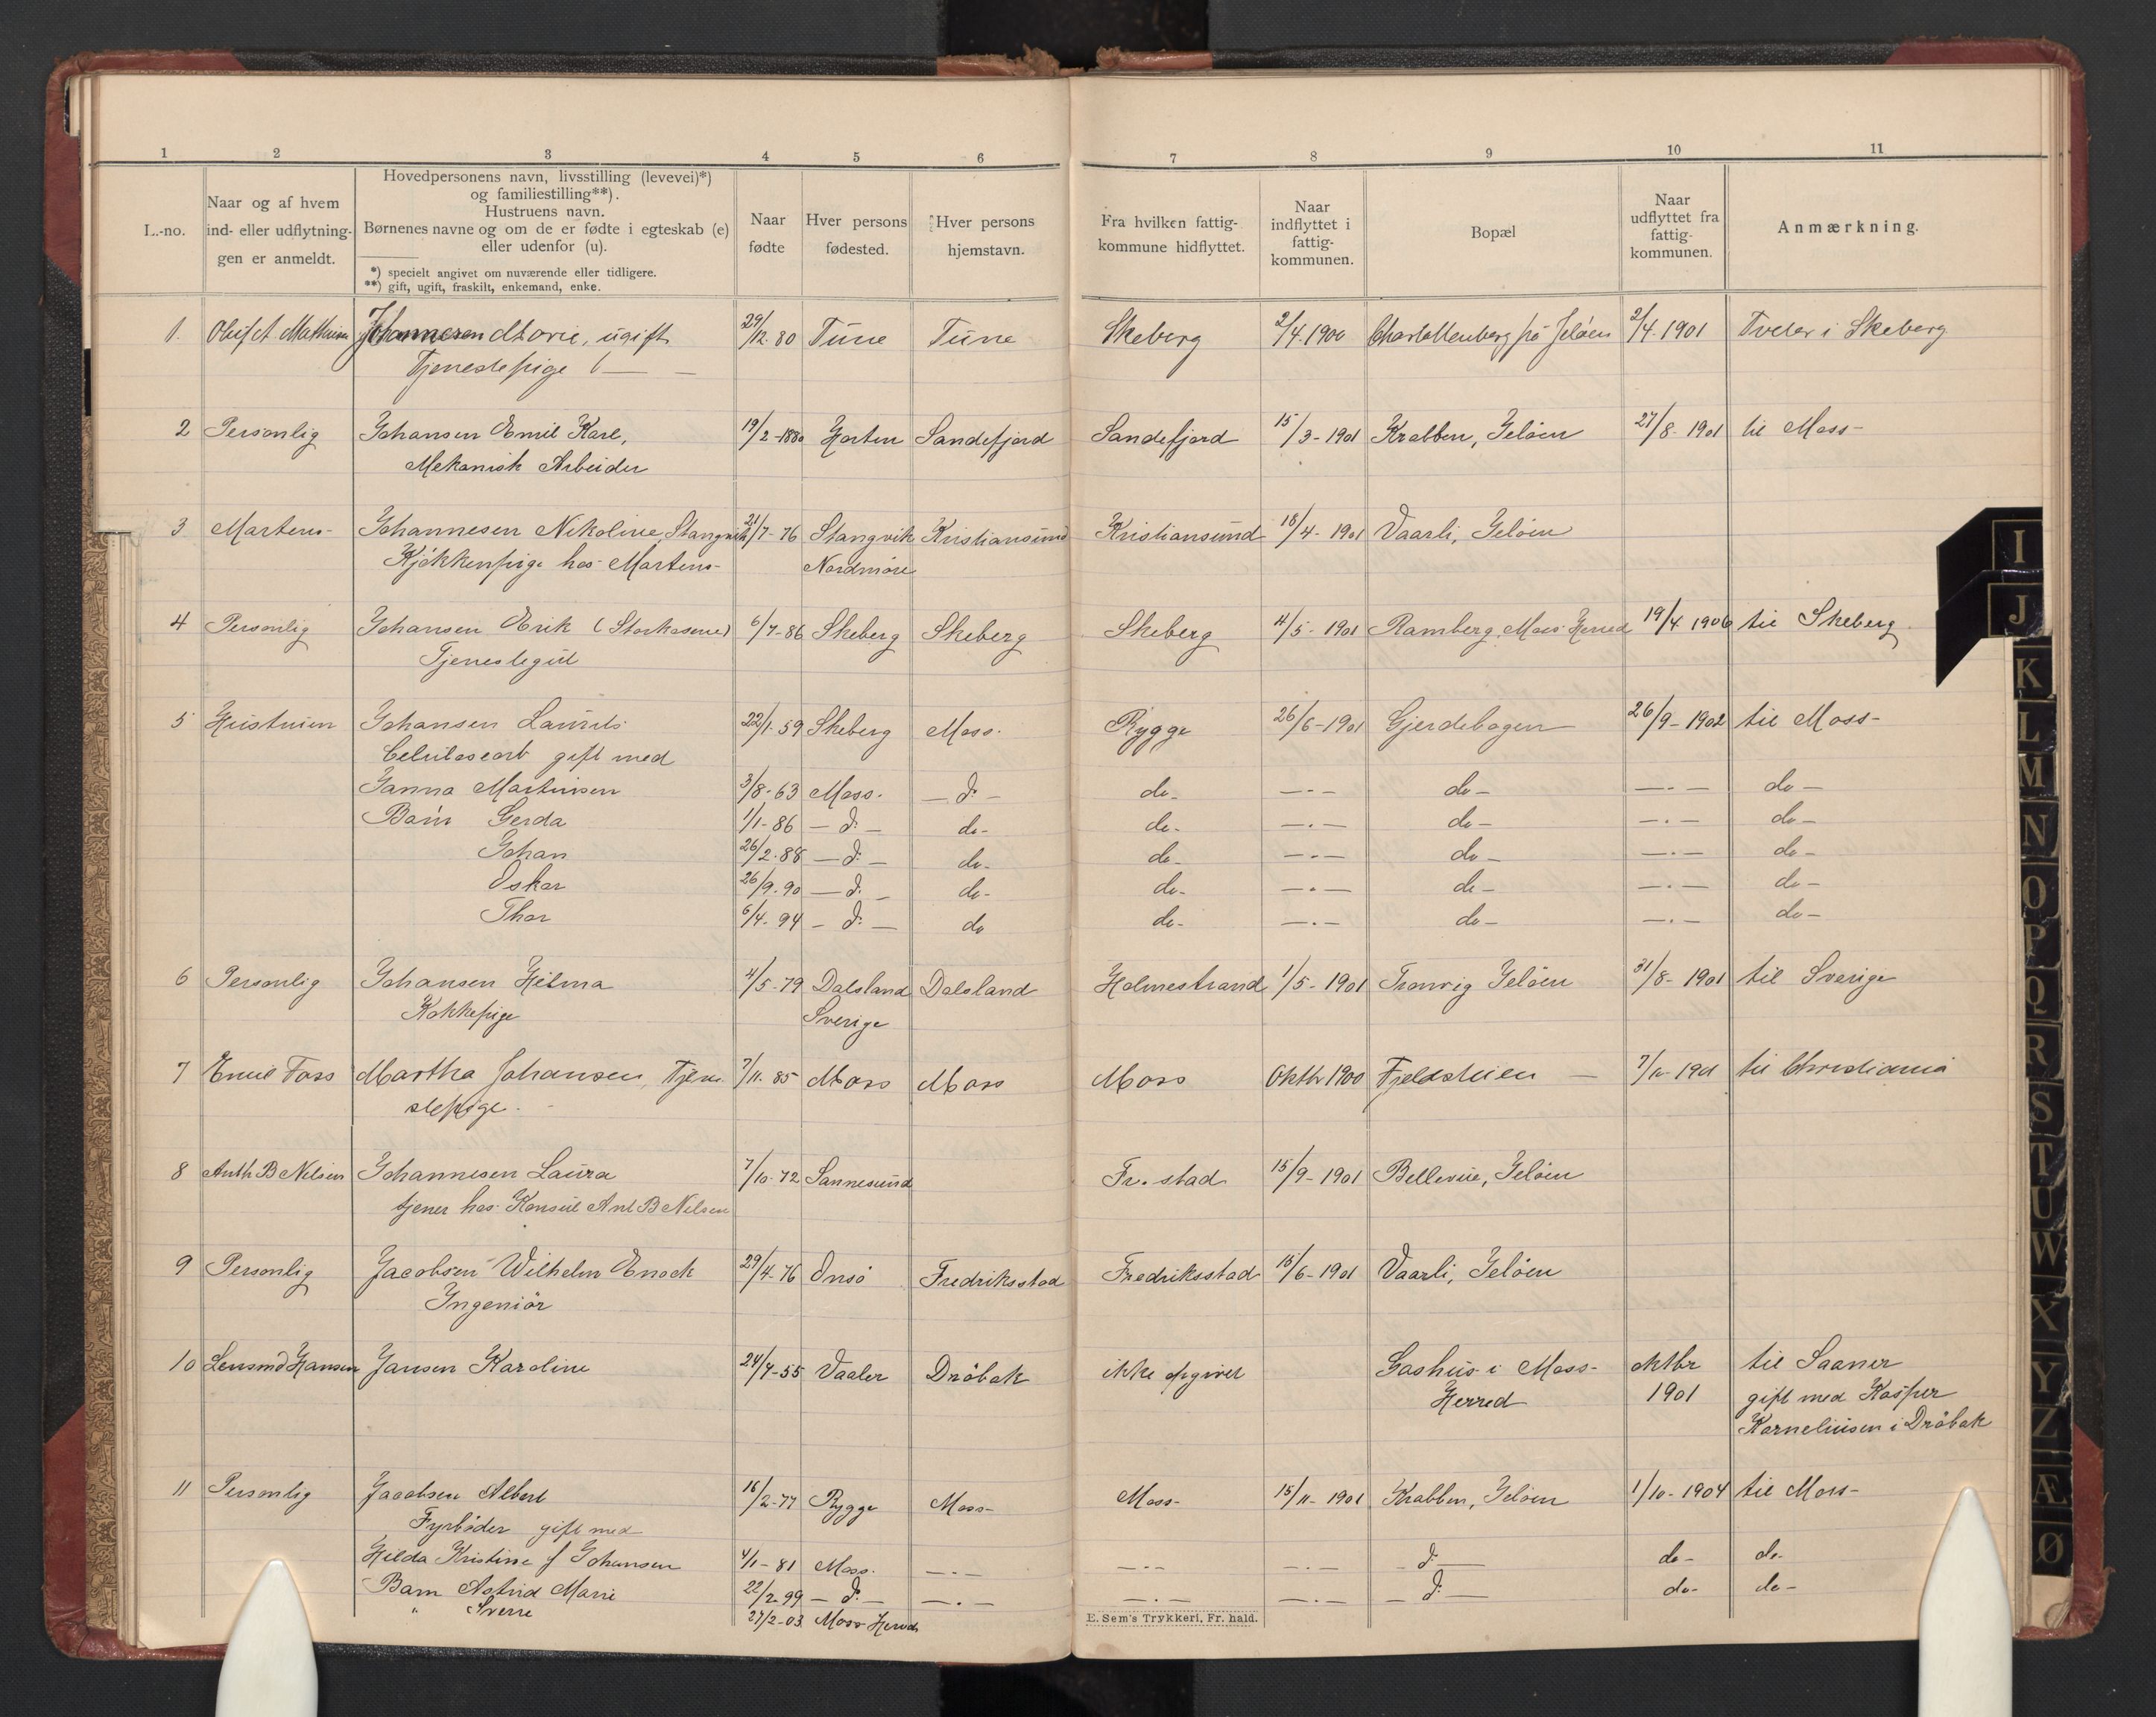 1 2 3 4 5 6 7 8 9 10 11
L.-no.
Naar og af hvem
ind- eller udflytnin-
gen er anmeldt.
Hovedpersonens navn, livsstilling (levevei)*)
og familiestilling**).
Hustruens navn.
Børnenes navne og om de er fødte i egteskab (e)
eller udenfor (u).
*) specielt angivet om nuværende eller tidligere.
**) gift, ugift, fraskilt, enkemand, enke.
Naar
fødte
Hver persons
fødested.
Hver persons
hjemstavn.
Fra hvilken fattig-
kommune hidflyttet.
Naar
indflyttet i
fattig-
kommunen.
Bopæl
Naar
udflyttet fra
fattig-
kommunen.
Anmærkning.
1. Johannesen Marie, ugift 29/12.80 Tune Tune Skeberg 2/4.1900 Charlottenberg på Jeløen 2/4.1901 Tveter i Skeberg
Tjenestepige
2 Personlig Johansen Emil Karl, 19/2-1880 Horten Sandefjord Sandefjord 15/3-1901 Krabben, Jeløen 27/8-1901 til Moss-
Mekanisk Arbeider
3 Martens- Johannesen Nikoline, Stangvik 21/7-76 Stangvik Kristiansund Kristiansund 18/4-1901 Vaarli, Jeløen
Kjøkkenpige hos Martens- Nordmøre
4 Personlig Johansen Erik 6/7-86 Skeberg Skeberg Skeberg 4/5-1901 Ramberg, Moss Herred 19/4 1906 til Skeberg
Tjenestegut
5 Hustruen Johansen Laurits 22/1-59 Skeberg Moss. Rygge 26/6-1901 Gjerdebogen 26/9-1902 til Moss-
Celulosearb gift med
Janna Martinsen 3/8-63 Moss. — d: — do- —·— do— —·— do—
Barn Gerda 1/1-86 — d: — do- do- —·— do— —·— do—
Johan 26/2-88 — d: — do- do- —·— do— —·— do—
Oskar 26/9.90 — d: — do- do- —·— do— —·— do—
Thor 6/4-94 — d: — do do- —·— do— —·— do—
6 Personlig Johansen Hilma 4/5-79 Dalsland Dalsland Holmestrand 1/5-1901 Tronvig Jeløen 31/8-1901 til Sverige
Kokkepige Sverige
7 Emil Foss Martha Johansen, Tjene- 7/11.85 Moss Moss Moss Oktbr 1900 Fjeldstuen — 1901 til Christiania
stepige.
8 Anth B Nilsen Johannesen Laura 7/10-72 Sannesund Fr.stad 15/9-1901 Bellevue, Jeløen
tjener hos Konsul Ant B Nilsen
9 Personlig Jacobsen Wilhelm Enock 29/4-76 Onsø Fredriksstad Fredriksstad 15/6-1901 Vaarli, Jeløen
Ingeniør
10 Lensmd Hansen Jansen Karoline 24/7-55 Vaaler Drøbak ikke opgivet Gashus i Moss- oktbr til Saaner
Herred 1901 gift med Kasper
Korneliusen i Drøbak
11 Personlig Jacobsen Albert 16/2-77 Rygge Moss- Moss- 15/11-1901 Krabben, Jeløen 1/10-1904 til Moss-
Fyrbøder gift med
Hilda Kristine f Johansen 4/1-81 Moss. —·— —·— —·— d: — do- do-
Barn Astrid Marie 22/2-99 — d: — —·— —·— —·— — d: — do- do-
" Sverre 27/2-03 Moss Herred
E. Sem's Trykkeri, Fr. hald.
I
J
K
L
M
N
O
P
Q
R
S
T
U
W
X
Y
Z
Æ
Ø